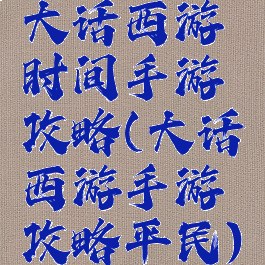 大话西游
时间手游
攻略(大话
西游手游
攻略平民)